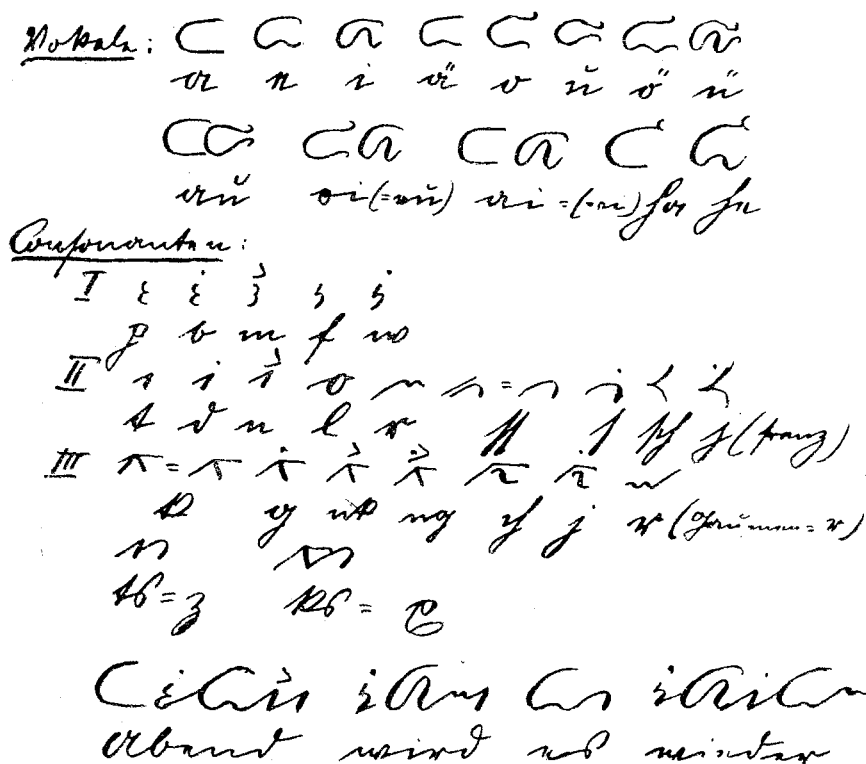 Vokale:
a e i ä o ŭ ö ü
aŭ oi (=eŭ) ai =(-ei) ha he
Consonanten:
I
p b m f w
II
t d n l r ſſ ſ ſch j (franz)
III
k g nk ng ch j r (Gaŭmen=r)
ts=z ks = x
Abend wird es wieder